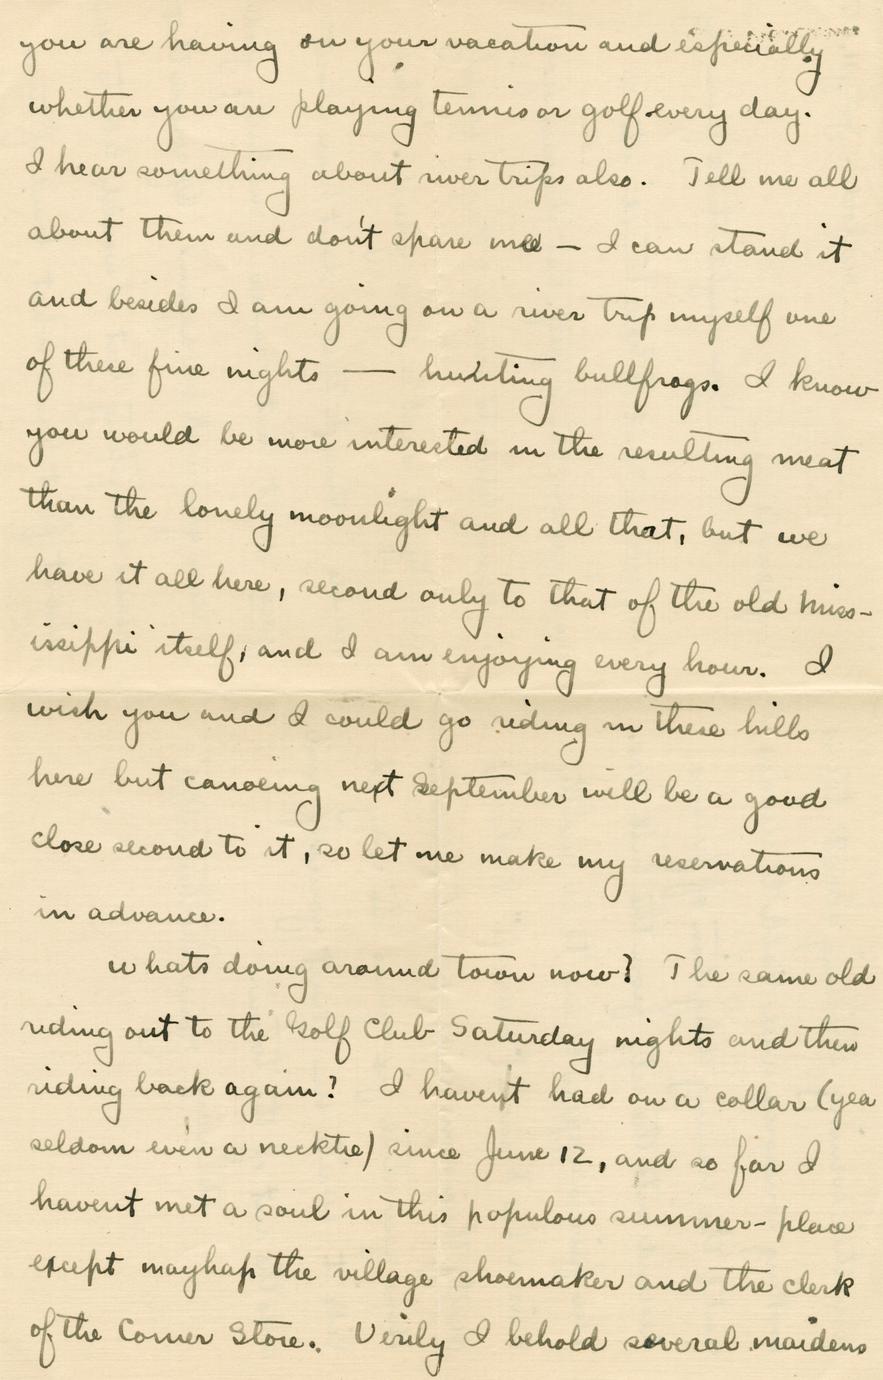 you are having on your vacation and especially
whether you are playing tennis or golf every day.
I hear something about river trips also. Tell me all
about them and don't spare me — I can stand it
and besides I am going on a river trip myself one
of these fine nights — hunting bullfrogs. I know
you would be more interested in the resulting meat
than the lonely moonlight and all that, but we
have it all here, second only to that of the old Miss-
issippi itself, and I am enjoying every hour. I
wish you and I could go riding in these hills
here but canoeing next September will be a good
close second to it, so let me make my reservations
in advance.
whats doing around town now? The same old
riding out to the Golf Club Saturday nights and then
riding back again? I haven't had on a collar (yea
seldom even a necktie) since June 12, and so far I
havent met a soul in this populous summer-place
except mayhap the village shoemaker and the clerk
of the Corner Store. Verily I behold several maidens